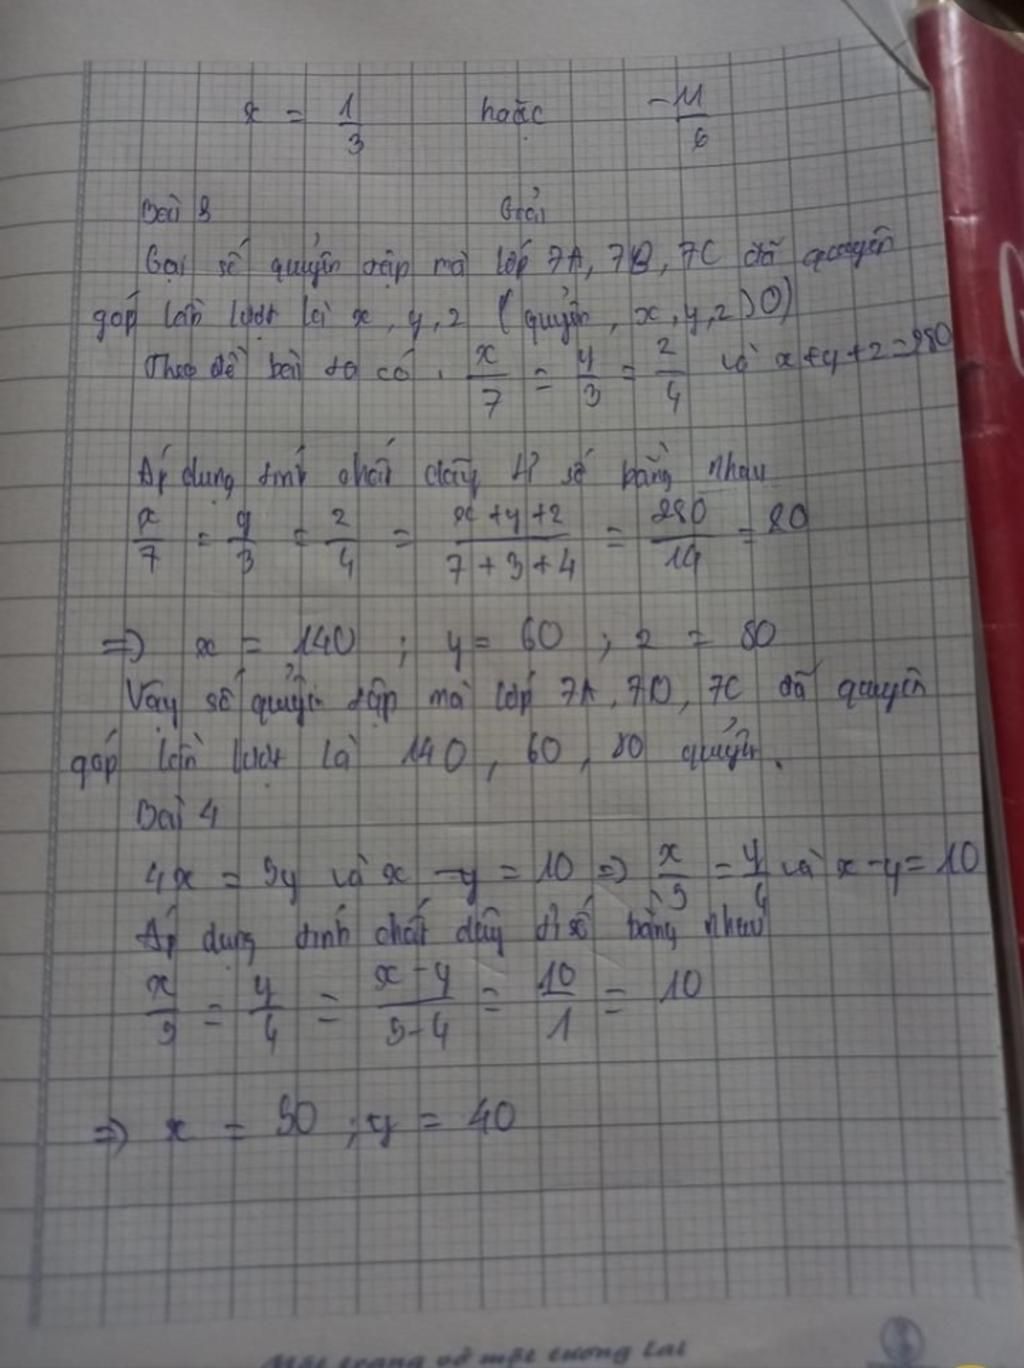 x = 1/3 hoặc -11/6
Bài 3 Giải
Gọi số quyển tập mà lớp 7A, 7B, 7C đã quyên
góp lần lượt là x, y, z (quyển, x, y, z > 0)
Theo đề bài ta có: x/7 = y/3 = z/4 và x + y + z = 280
Áp dụng tính chất dãy tỉ số bằng nhau
x/7 = y/3 = z/4 = x + y + z / 7 + 3 + 4 = 280/14 = 20
=> x = 140 ; y = 60 ; z = 80
Vậy số quyển tập mà lớp 7A, 7B, 7C đã quyên
góp lần lượt là 140, 60, 80 quyển.
Bài 4
4x = 5y và x - y = 10 => x/5 = y/4 và x - y = 10
Áp dụng tính chất dãy tỉ số bằng nhau
x/5 = y/4 = x - y / 5 - 4 = 10/1 = 10
=> x = 50 ; y = 40